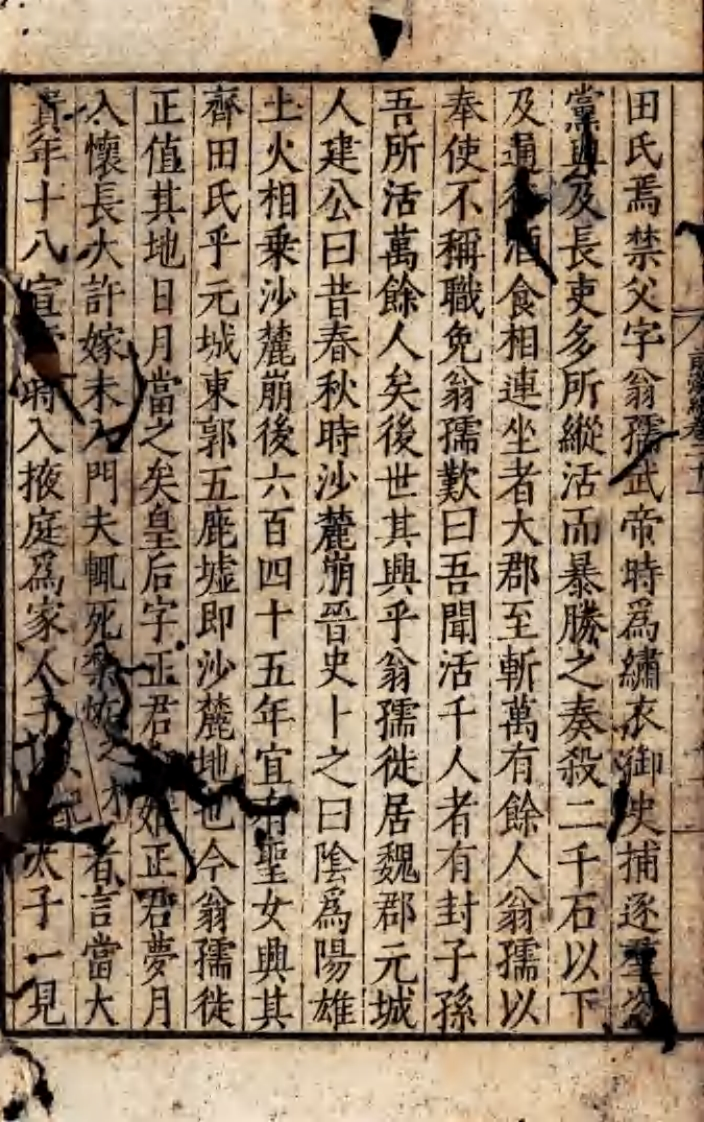 田氏焉禁父字翁孺武帝時爲繡衣御史捕逐羣盗
黨與及長吏多所縱活而暴勝之奏殺二千石以下
及通行酒食相連坐者大郡至斬萬有餘人翁孺以
奉使不稱職免翁孺歎曰吾聞活千人者有封子孫
吾所活萬餘人矣後世其興乎翁孺徙居魏郡元城
人建公曰昔春秋時沙麓崩晉史卜之曰陰爲陽雄
土火相乗沙麓崩後六百四十五年宜有聖女興其
齊田氏乎元城東郭五鹿墟即沙麓地也今翁孺徙
正值其地日月當之矣皇后字正君姙正君夢月
入懷長大許嫁未入門夫輒死禁怪之者言當大
貴年十八宣帝時入掖庭爲家人子太子一見